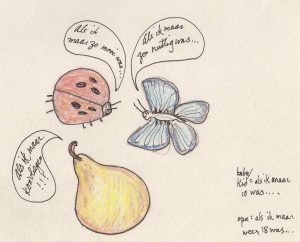 Als ik
maar
zo mooi
was...
Als ik maar
zo nuttig was...
Als ik maar
!!!
baby/
kid = als ik maar
10 was....
opa = als ik maar
weer 18 was...